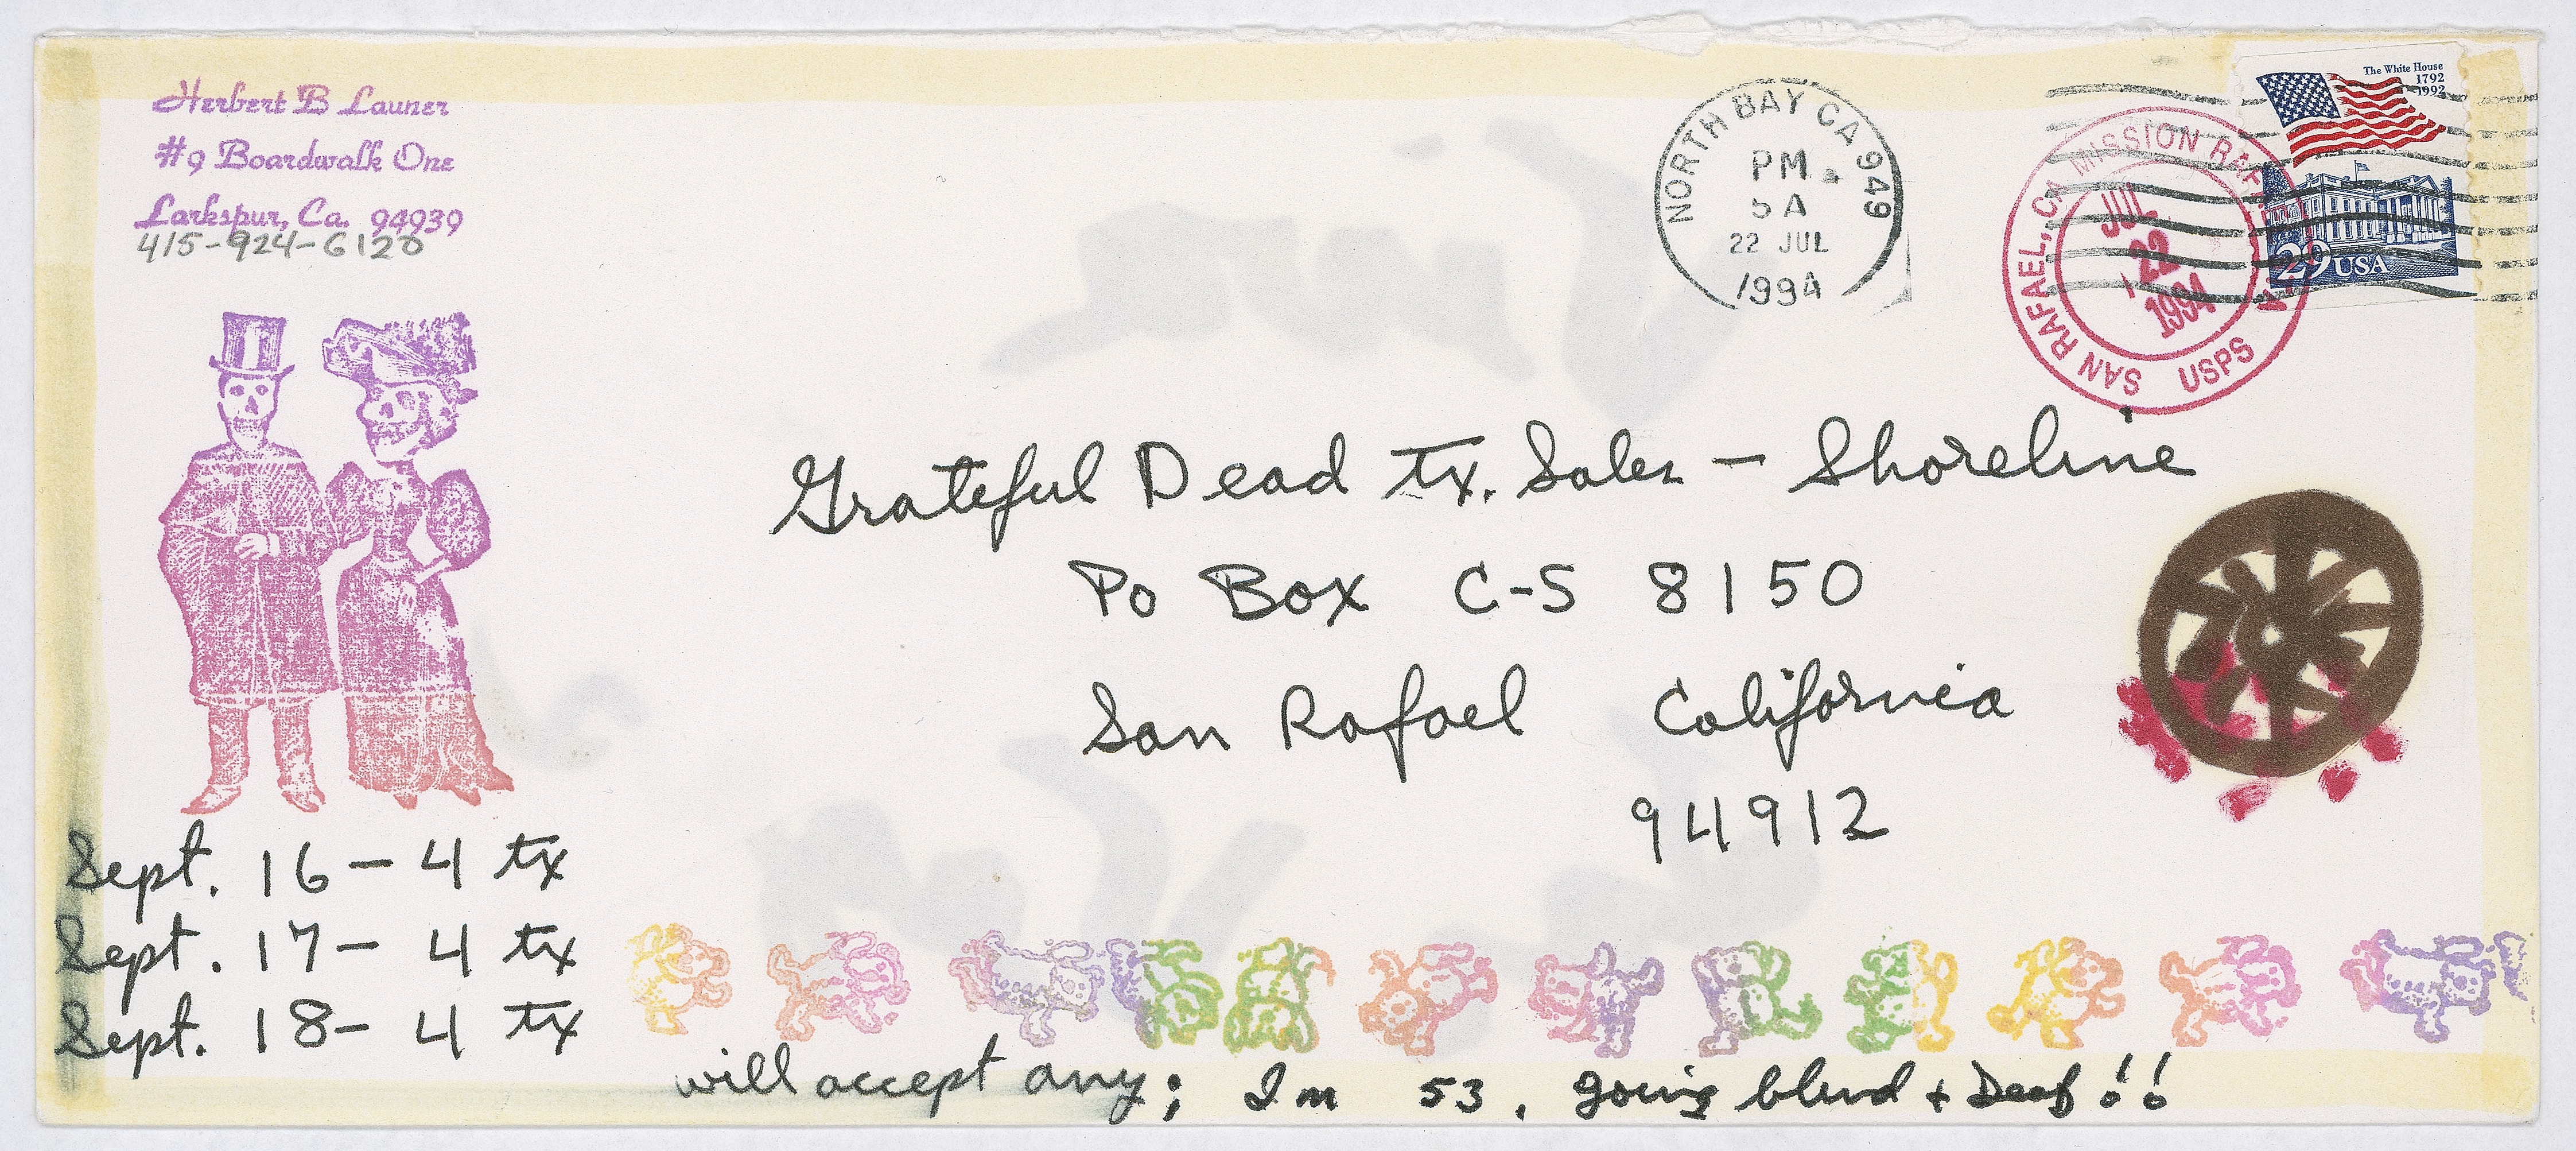 Herbert B Launer
#9 Boardwalk One
Larkspur, Ca. 94939
415-924-6120
NORTH BAY CA 949
PM
5A
22 JUL
1994
SAN RAFAEL, CA MISSION RAFAEL USPS
JUL
22
1994
The White House
1792
1992
29 USA
Grateful Dead tx. Sales - Shoreline
Po Box C-S 8150
San Rafael California
94912
Sept. 16 - 4 tx
Sept. 17 - 4 tx
Sept. 18 - 4 tx
will accept any; Im 53, going blind + Deaf!!